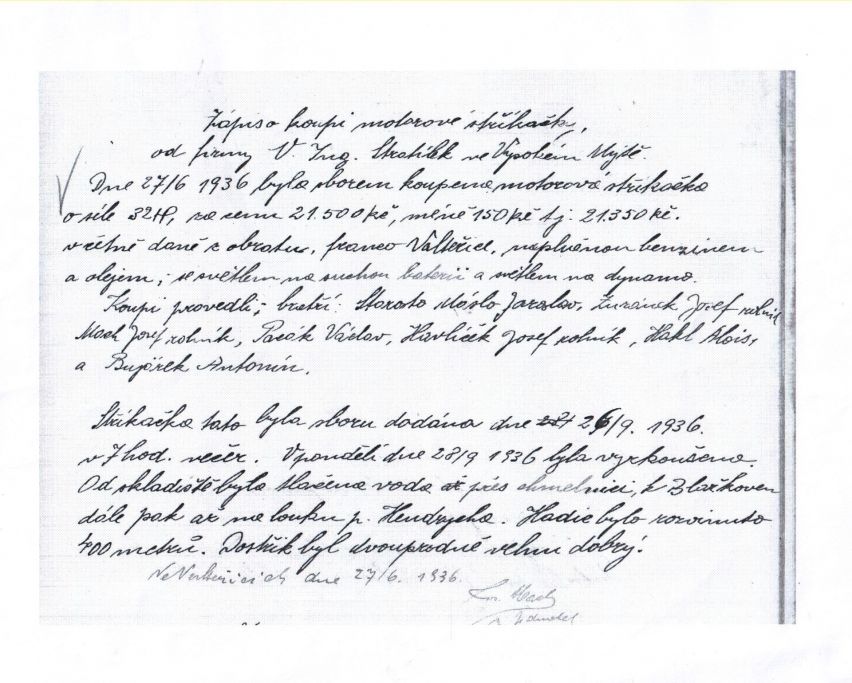 Zápis o koupi motorové stříkačky,
od firmy V. Ing. Stratílek ve Vysokém Mýtě.
Dne 27/6 1936 byla sborem koupena motorová stříkačka
o síle 32HP, za cenu 21.500 kč, méně 150 kč tj. 21.350 kč.
včétně daně z obratu, franco Valteřice, naplněnou benzinem
a olejem, se světlem na suchou baterii a světlem na dynamo.
Koupi provedli; bratří: Máslo Jaroslav, Josef rolník
Mach Josef rolník, Pacák Václav, Havlíček Josef rolník, Hakl Alois,
a Antonín.
Stříkačka tato byla sboru dodána dne 26/9. 1936.
v 7 hod. večer. V pondělí dne 28/9 1936 byla vyzkoušena.
Od skladiště byla tlačena voda až přes chmelnici, k Blažkovem
dále pak až na louku p. Hendrycha. Hadic bylo rozvinuto
400 metrů. Dostřik byl dvouproudně velmi dobrý.
dne 27/6. 1936.
Mach